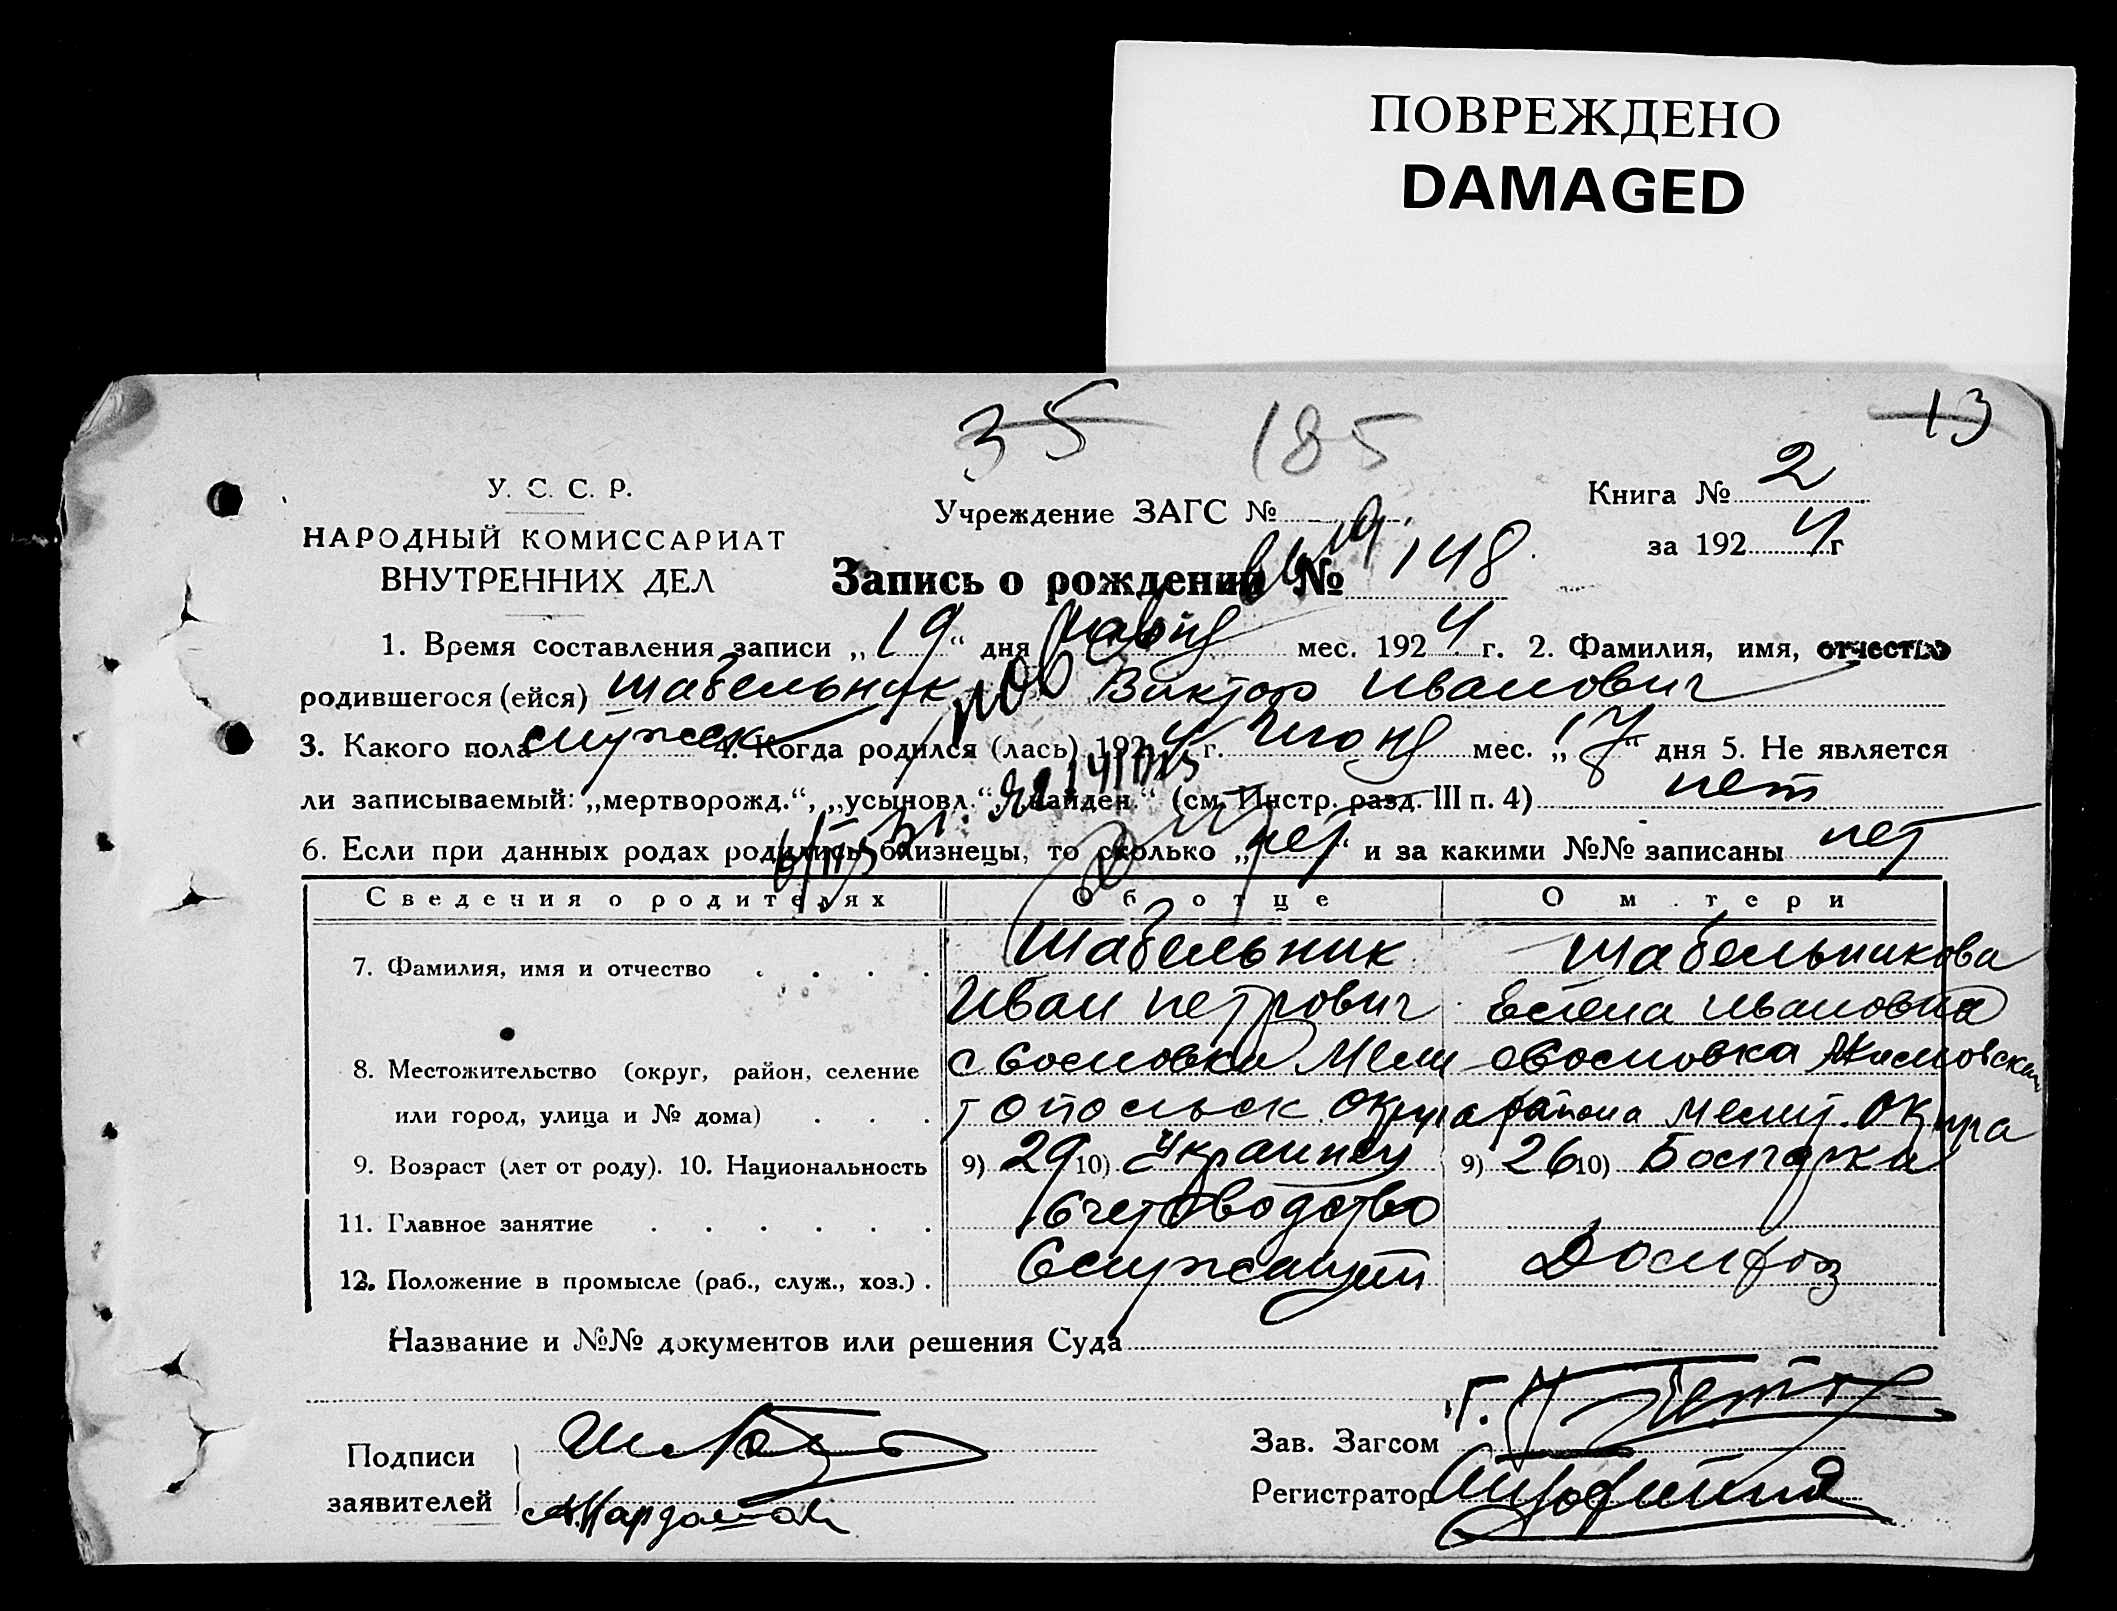 ПОВРЕЖДЕНО
DAMAGED
35 185 13
У. С. С. Р.
НАРОДНЫЙ КОМИССАРИАТ
ВНУТРЕННИХ ДЕЛ
Учреждение ЗАГС №
Книга № 2
за 1924 г
Запись о рождении № 148
1. Время составления записи „19“ дня мес. 1924 г. 2. Фамилия, имя, отчество
родившегося (ейся) Шабельник Виктор Иванович
3. Какого пола мужск 4. Когда родился (лась) 1924 г. Июня мес. „17“ дня 5. Не является
ли записываемый: „мертворожд.“, „усыновл.“, „найден.“ (см. Инстр. разд. III п. 4) нет
6. Если при данных родах родились близнецы, то сколько „нет“ и за какими №№ записаны нет
Сведения о родителях Об отце О м.тери
7. Фамилия, имя и отчество Шабельник Шабельникова
Иван Петрович Елена Ивановна
8. Местожительство (округ, район, селение
или город, улица и № дома) топольск округа района Мелит. Округа
9. Возраст (лет от роду). 10. Национальность 9) 29 10) Украинец 9) 26 10) Болгарка
11. Главное занятие Счетоводство
12. Положение в промысле (раб., служ., хоз.) Служащий Домхоз
Название и №№ документов или решения Суда
Подписи
заявителей
Зав. Загсом
Регистратор